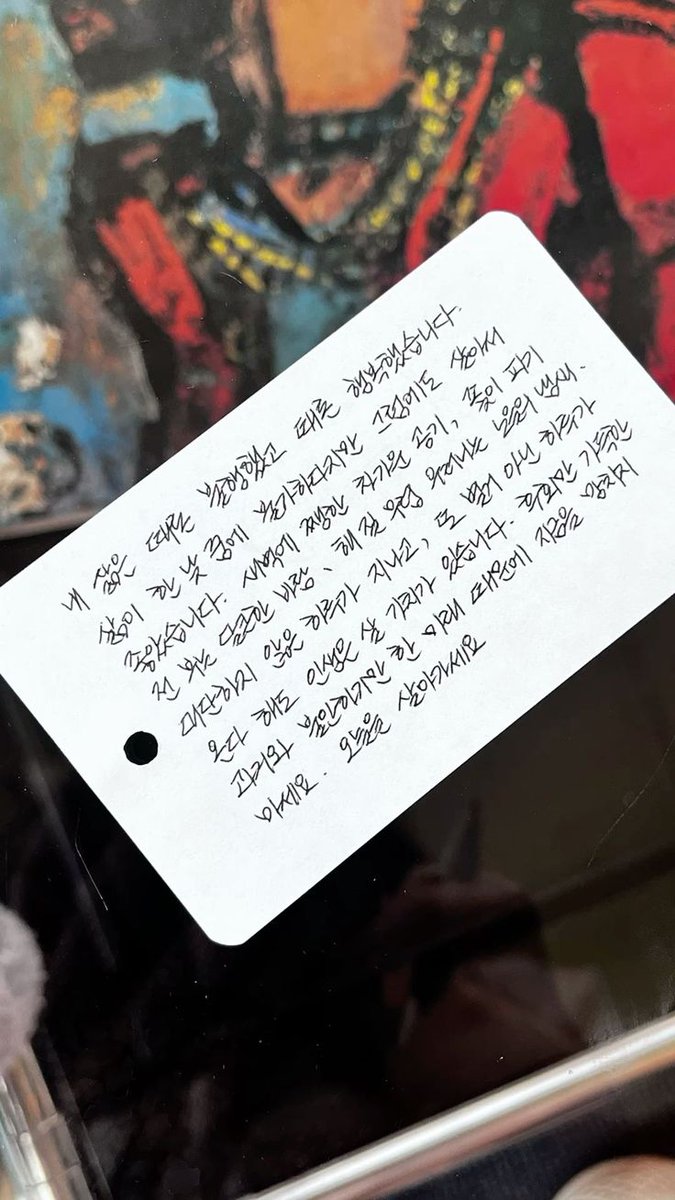 내 삶은 때론 불행했고 때론 행복했습니다.
삶이 한 낱 꿈에 불과하다지만 그럼에도 살아서
좋았습니다. 새벽에 쨍한 차가운 공기, 꽃이 피기
전 부는 달큰한 바람, 해 질 무렵 우러나는 노을의 냄새.
대단하지 않은 하루가 지나고, 또 별거 아닌 하루가
온다 해도 인생은 살 가치가 있습니다. 후회만 가득한
과거와 불안하기만 한 미래 때문에 지금을 망치지
마세요. 오늘을 살아가세요